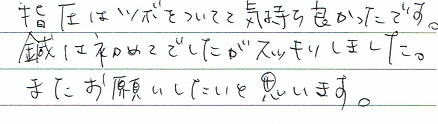 指圧はツボをついてて気持ち良かったです。
鍼は初めてでしたがスッキリしました。
またお願いしたいと思います。